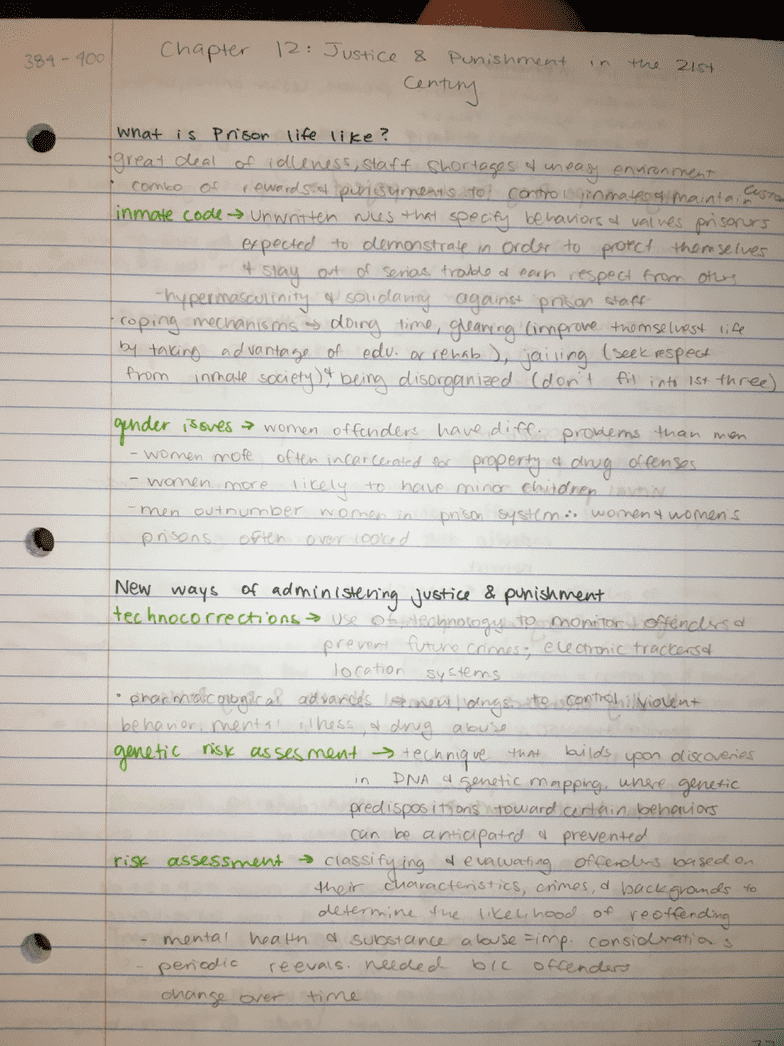 384-400
Chapter 12: Justice & Punishment in the 21st
Century
What is Prison life like?
· great deal of idleness, staff shortages & uneasy environment
· combo of rewards & punishments to control inmates & maintain
inmate code → unwritten rules that specify behaviors & values prisoners
expected to demonstrate in order to protect themselves
& stay out of serious trouble & earn respect from others
- hypermasculinity & solidarity against prison staff
· coping mechanisms → doing time, gleaning (improve themselves & life
by taking advantage of edu. or rehab), jailing (seek respect
from inmate society), & being disorganized (don't fit into 1st three)
gender issues → women offenders have diff. problems than men
- women more often incarcerated for property & drug offenses
- women more likely to have minor children
- men outnumber women in prison system ∴ women & womens
prisons often overlooked
New ways of administering justice & punishment
technocorrections → use of technology to monitor offenders &
prevent future crimes; electronic trackers &
location systems
· pharmacological advances → new drugs to control violent
behavior, mental illness, & drug abuse
genetic risk assesment → technique that builds upon discoveries
in DNA & genetic mapping, where genetic
predispositions toward certain behaviors
can be anticipated & prevented
risk assessment → classifying & evaluating offenders based on
their characteristics, crimes, & backgrounds to
determine the likelihood of reoffending
- mental health & substance abuse = imp. considerations
- periodic reevals. needed b/c offenders
change over time